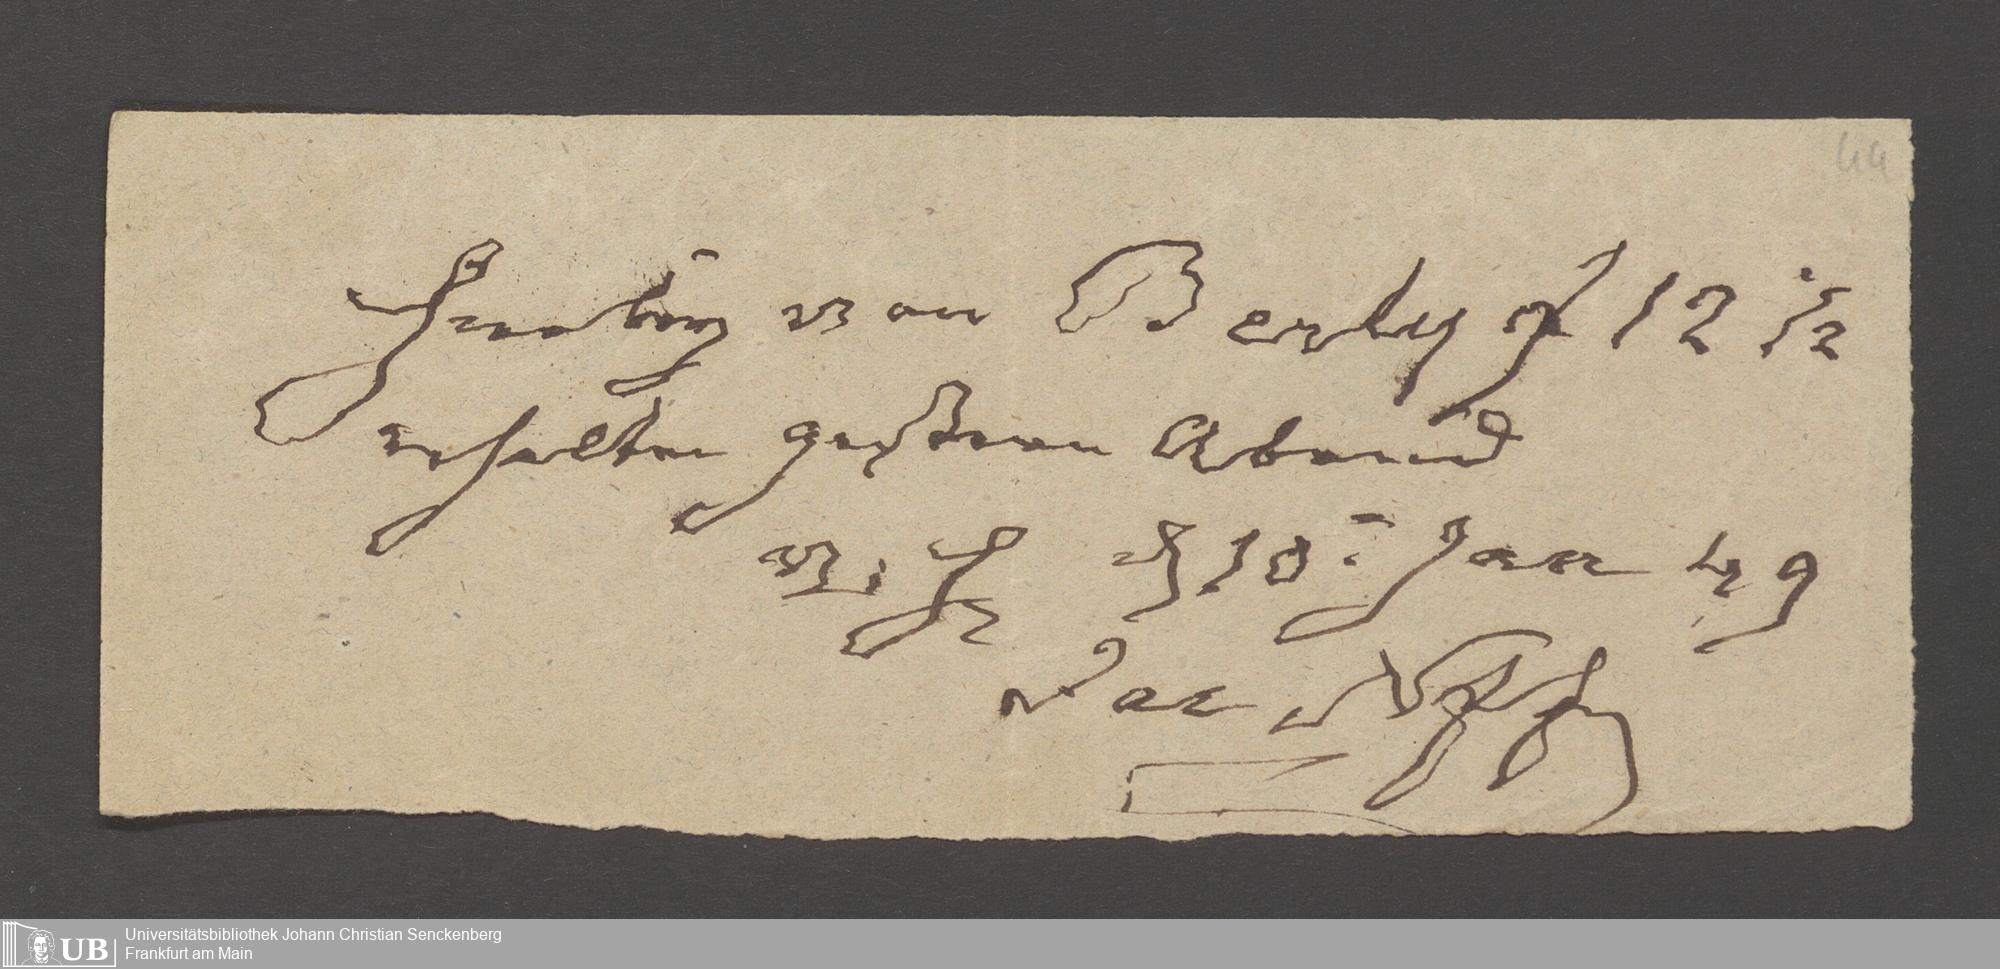 44
von Berly f 12 1/2
erhalten gestern Abend
d 10 Jan 49
Jac
UB
Universitätsbibliothek Johann Christian Senckenberg
Frankfurt am Main